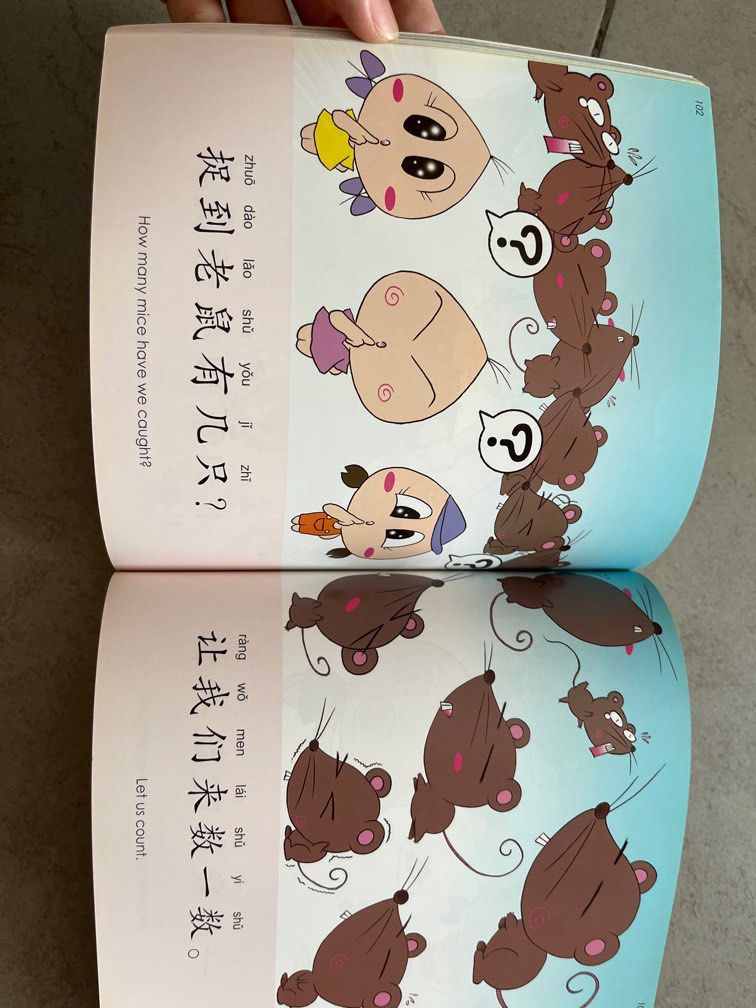 102
?
?
?
zhuō dào lǎo shǔ yǒu jǐ zhī
捉到老鼠有几只？
How many mice have we caught?
ràng wǒ men lái shǔ yi shǔ
让我们来数一数。
Let us count.